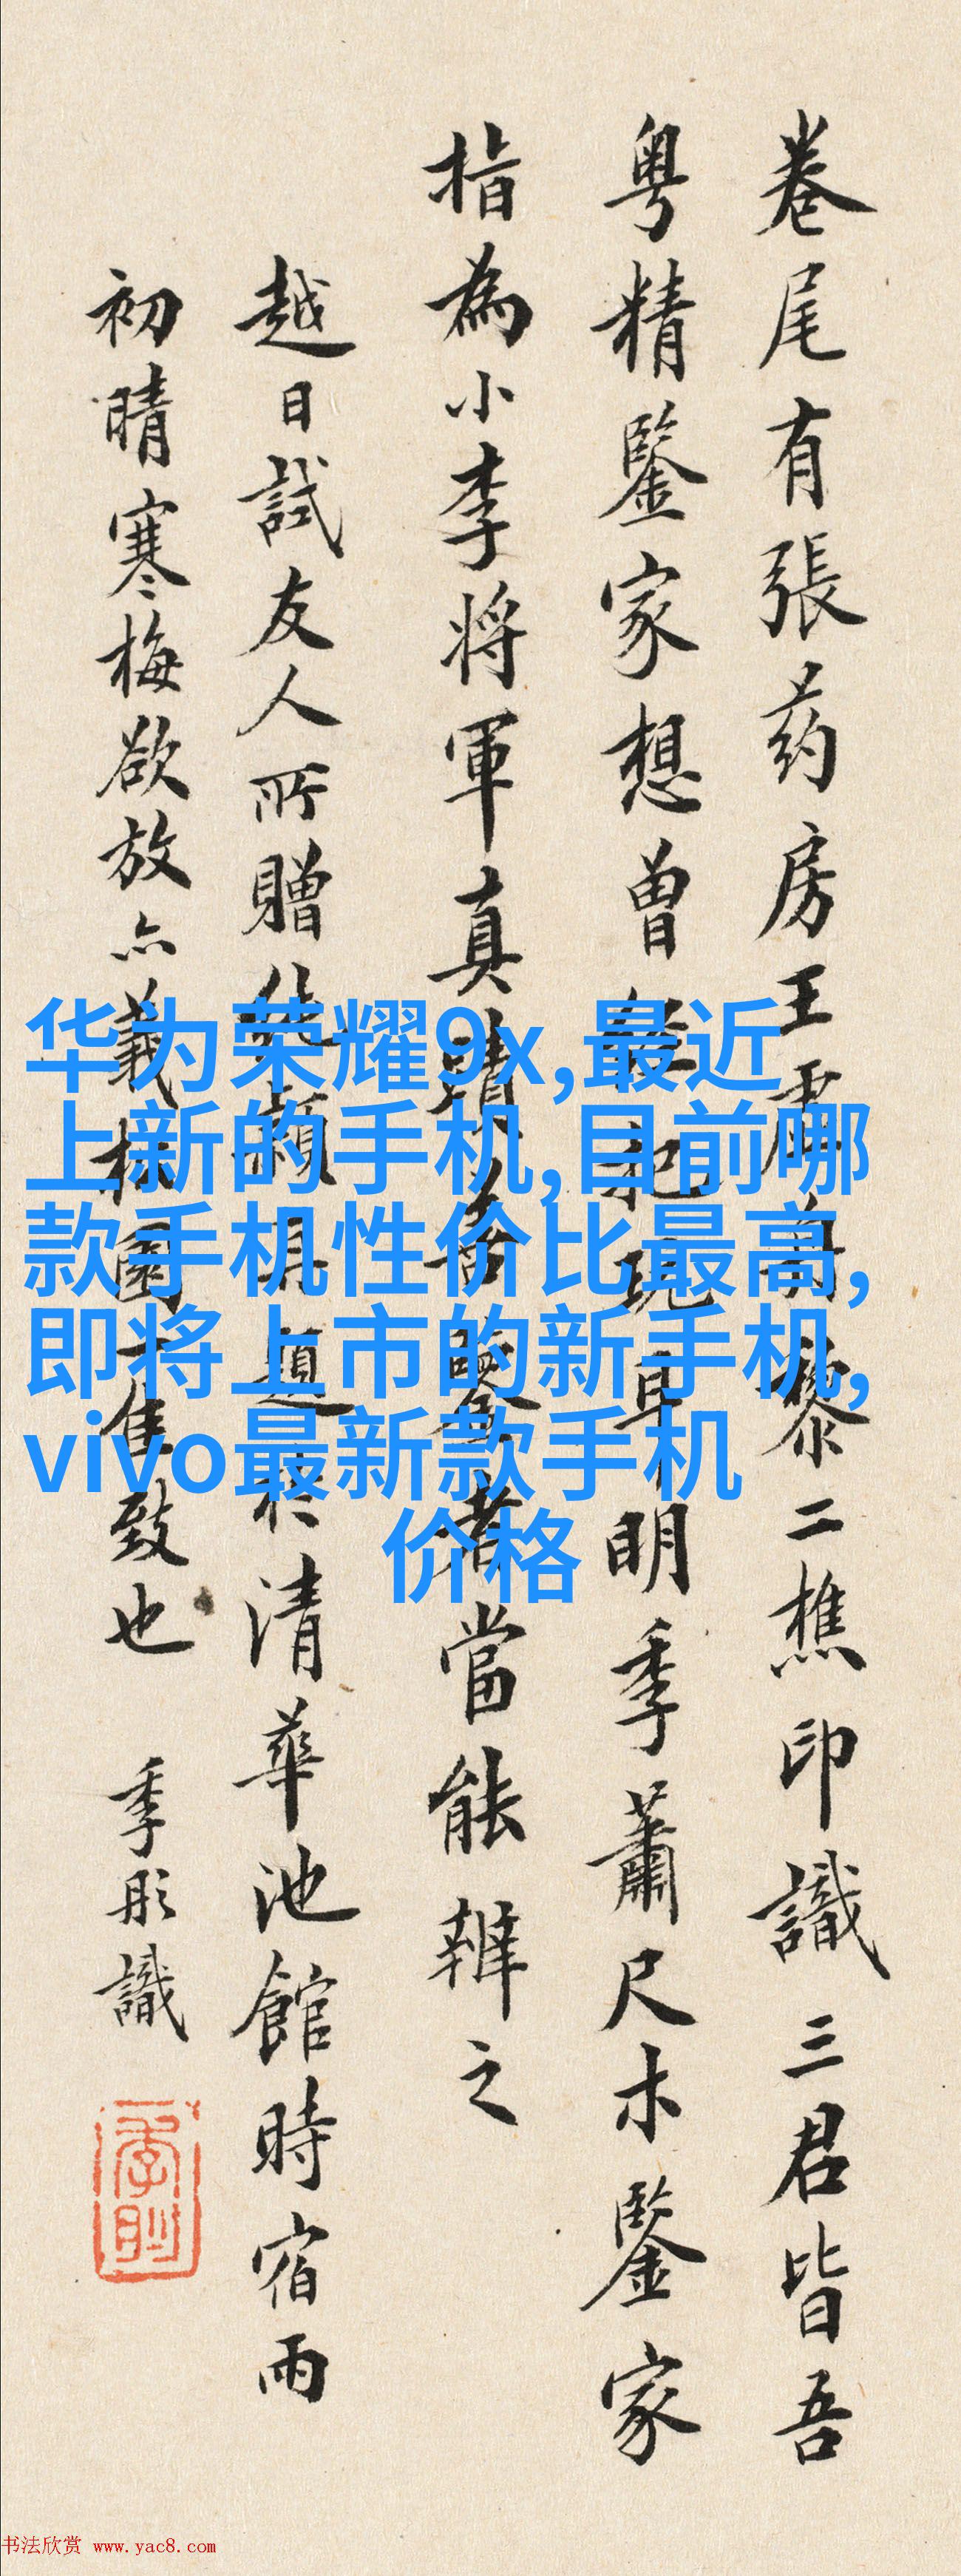 卷尾有張药房王雪舟黎二樵印識三君皆吾
粤精鑒家想曾經把玩早明季蕭尺木鑒家
指為小李將軍真蹟善鑒者當能辨之
越日試友人所贈穎且題於清華池館時宿雨
初晴寒梅欲放亦義林園一佳致也 季彤識
华为荣耀9x,最近
上新的手机,目前哪
款手机性价比最高,
即将上市的新手机,
vivo最新款手机
价格
书法欣赏 www.yac8.com